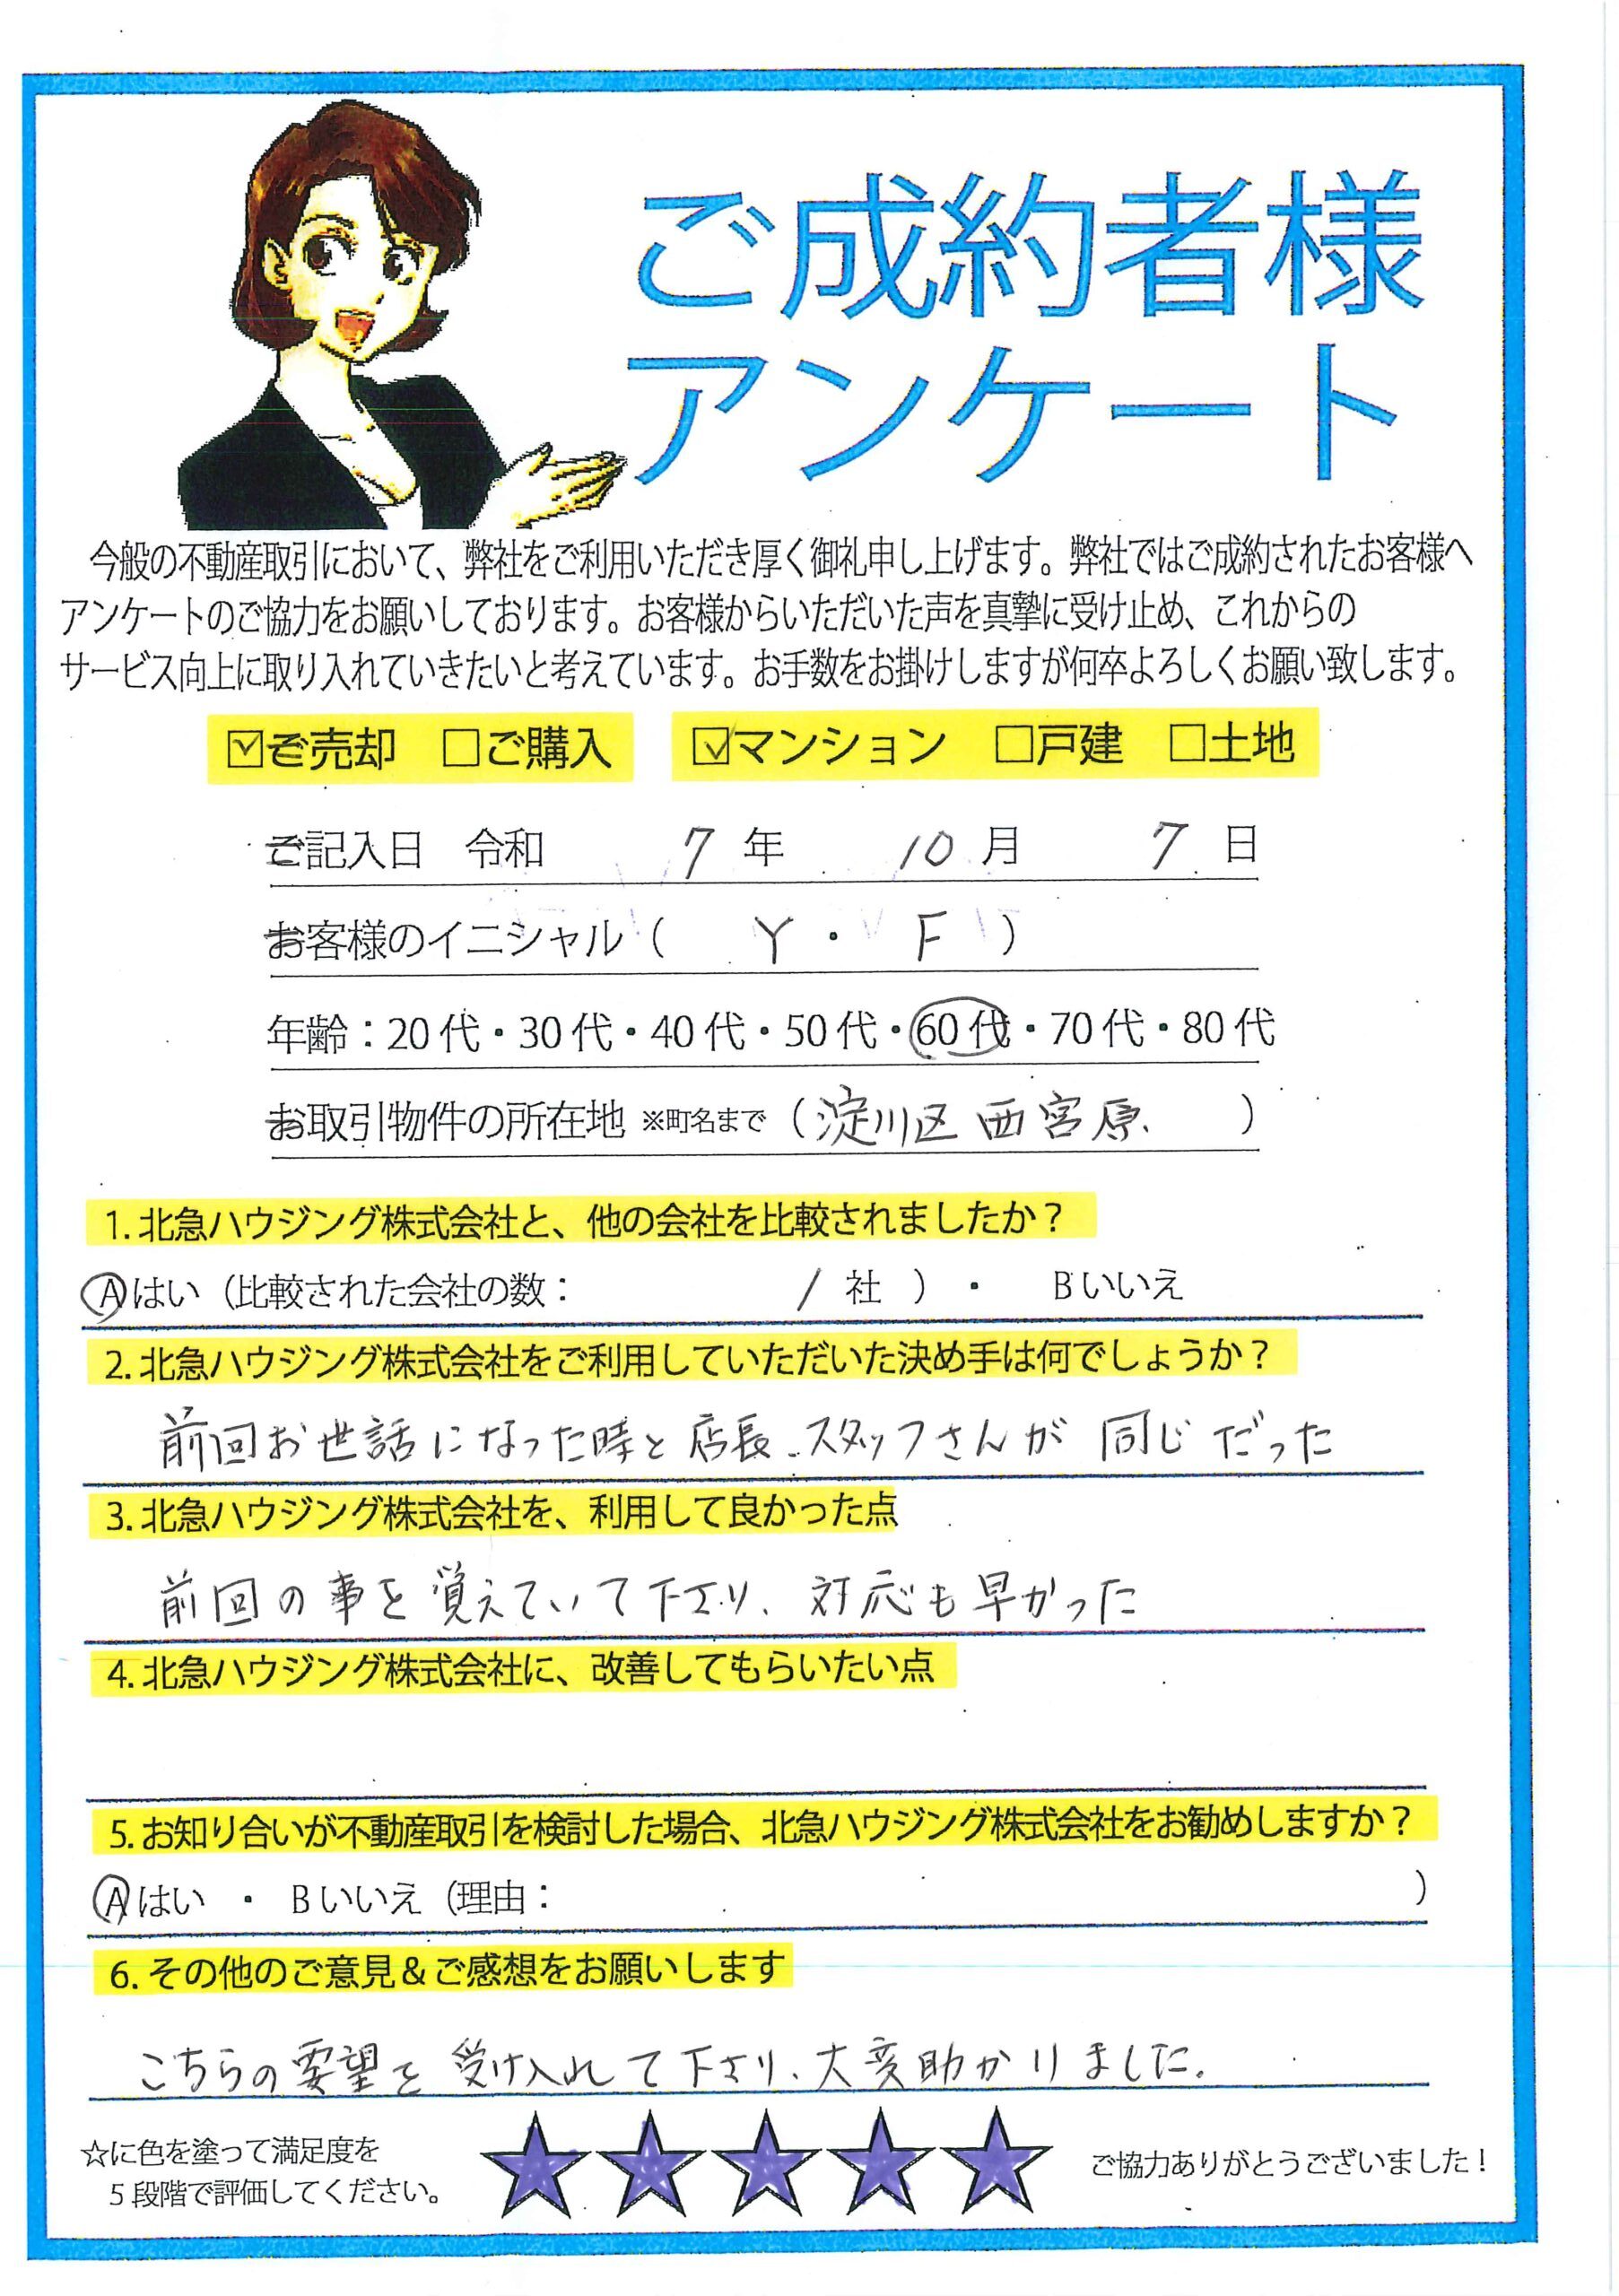 ご成約者様
アンケート
今般の不動産取引において、弊社をご利用いただき厚く御礼申し上げます。弊社ではご成約されたお客様へ
アンケートのご協力をお願いしております。お客様からいただいた声を真摯に受け止め、これからの
サービス向上に取り入れていきたいと考えています。お手数をお掛けしますが何卒よろしくお願い致します。
☑ご売却 □ご購入 ☑マンション □戸建 □土地
ご記入日 令和 7 年 10 月 7 日
お客様のイニシャル（ Y ・ F ）
年齢：20代・30代・40代・50代・60代・70代・80代
お取引物件の所在地 ※町名まで（淀川区 西宮原）
1. 北急ハウジング株式会社と、他の会社を比較されましたか？
Aはい（比較された会社の数： 1 社 ）・ Bいいえ
2. 北急ハウジング株式会社をご利用していただいた決め手は何でしょうか？
前回お世話になった時と店長、スタッフさんが同じだった
3. 北急ハウジング株式会社を、利用して良かった点
前回の事を覚えていて下さり、対応も早かった
4. 北急ハウジング株式会社に、改善してもらいたい点
5. お知り合いが不動産取引を検討した場合、北急ハウジング株式会社をお勧めしますか？
Aはい ・ Bいいえ（理由： ）
6. その他のご意見＆ご感想をお願いします
こちらの要望を受け入れて下さり、大変助かりました。
☆に色を塗って満足度を
5段階で評価してください。
★★★★★
ご協力ありがとうございました！